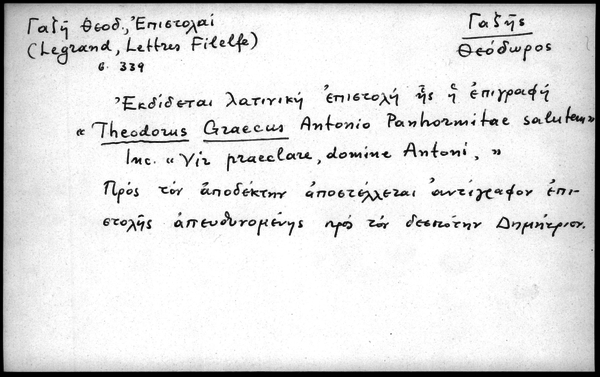 Γαζῆ Θεοδ., Ἐπιστολαί
(Legrand, Lettres Filelfe)
σ. 339
Γαζῆς
Θεόδωρος
Ἐκδίδεται λατινική ἐπιστολή ἧς ἡ ἐπιγραφή
« Theodorus Graecus Antonio Panhormitae salutem»
Inc. « Vir praeclare, domine Antoni, »
Πρός τόν ἀποδέκτην ἀποστέλλεται ἀντίγραφον ἐπι-
στολῆς ἀπευθυνομένης πρός τόν δεσπότην Δημήτριον.